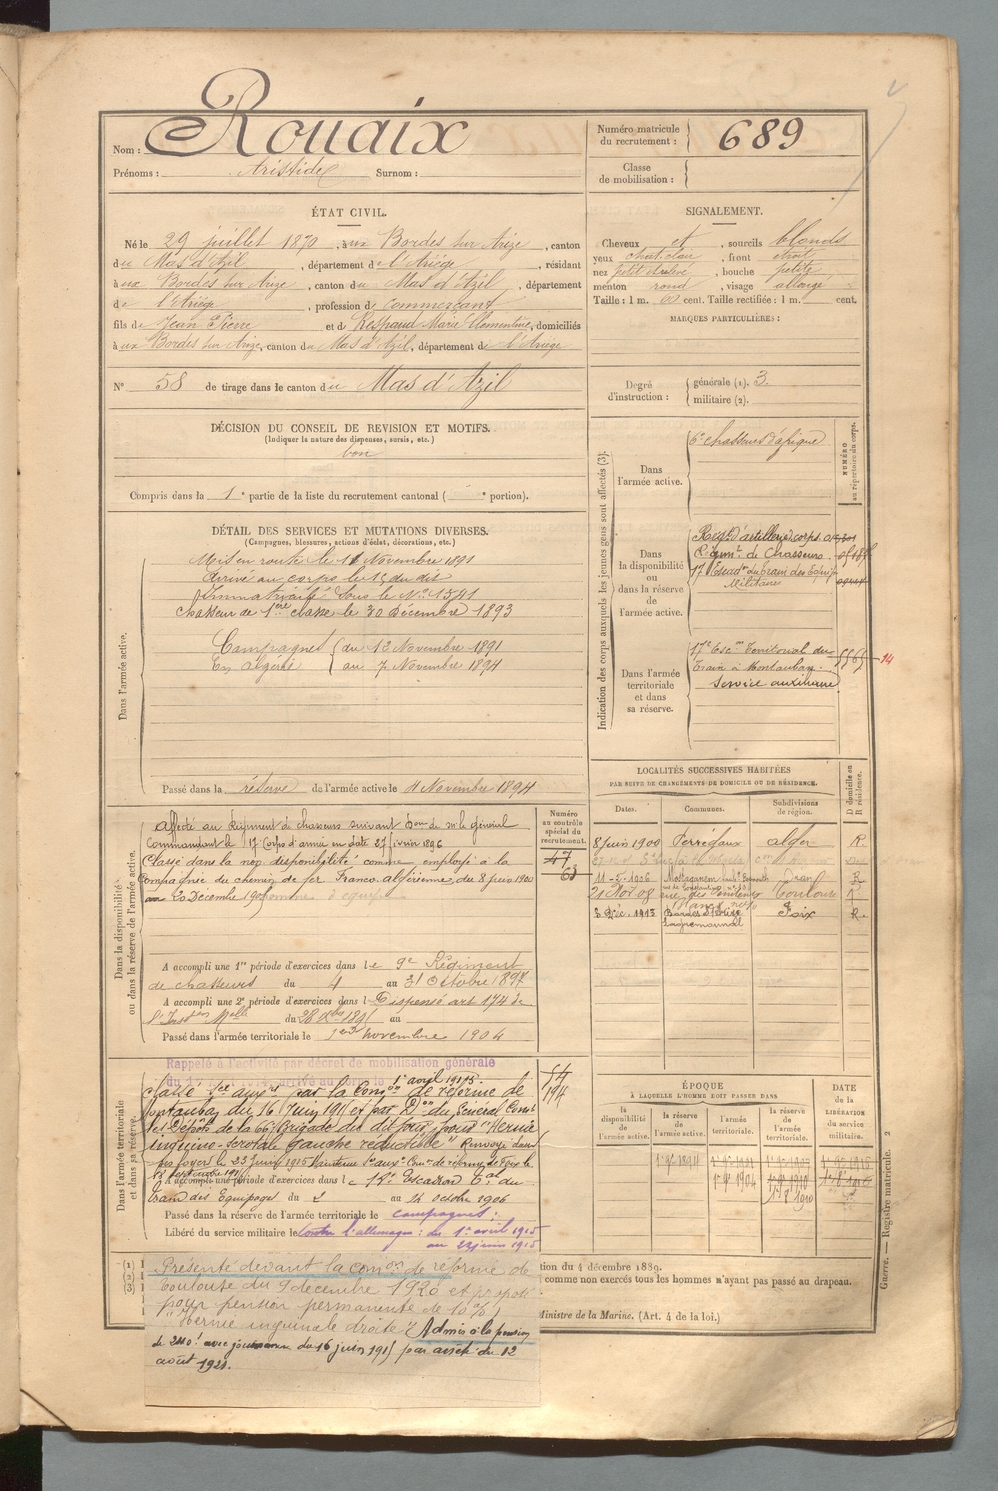 Rouaix
Nom :
Prénoms : Aristide Surnom :
Numéro matricule
du recrutement : 689
Classe
de mobilisation :
ÉTAT CIVIL.
Né le 29 juillet 1870, à ux Bordes sur Arize, canton
du Mas d'Azil, département de l'Ariège, résidant
à ux Bordes sur Arize, canton du Mas d'Azil, département
de l'Ariège, profession de commerçant
fils de Jean Pierre et de Respaud Marie Clémentine, domiciliés
à ux Bordes sur Arize, canton du Mas d'Azil, département de l'Ariège
N° 58 de tirage dans le canton du Mas d'Azil
SIGNALEMENT.
Cheveux et, sourcils blonds
yeux chat. clair, front étroit
nez petit, bouche petite
menton rond, visage allongé
Taille : 1 m. 60 cent. Taille rectifiée : 1 m. cent.
MARQUES PARTICULIÈRES :
Degré
d'instruction :
générale (1). 3.
militaire (2).
DÉCISION DU CONSEIL DE REVISION ET MOTIFS.
(Indiquer la nature des dispenses, sursis, etc.)
bon
Compris dans la 1e partie de la liste du recrutement cantonal ( e portion).
DÉTAIL DES SERVICES ET MUTATIONS DIVERSES.
(Campagnes, blessures, actions d'éclat, décorations, etc.)
Dans l'armée active.
Mis en route le 11 Novembre 1891
Arrivé au corps le 15 du dit
Immatriculé sous le N° 1591
Chasseur de 1ère classe le 30 Décembre 1893
Campagnes du 12 Novembre 1891
En Algérie au 7 Novembre 1894
Passé dans la réserve de l'armée active le 1 Novembre 1894
Indication des corps auxquels les jeunes gens sont affectés (3).
NUMÉRO
au répertoire du corps.
Dans
l'armée active.
6e chasseurs d'afrique
Dans
la disponibilité
ou
dans la réserve
de
l'armée active.
Regt d'artillerie corps
Régimt de Chasseurs
17 Escadn du train des Équip.
Militaires
Dans l'armée
territoriale
et dans
sa réserve.
17e Escon Territorial du
Train à Montauban
Service auxiliaire
14
Dans la disponibilité
ou dans la réserve de l'armée active.
Numéro
au contrôle
spécial du
recrutement.
47
68
Affecté au Régiment de chasseurs suivant Don de Mr le général
Commandant le 17 Corps d'armée en date 27 juin 1896
Classé dans la non disponibilité comme employé à la
Compagnie du chemin de fer Franco-algérienne, du 8 juin 1900
au 20 Décembre 1908 homme d'équipe
A accompli une 1re période d'exercices dans le 9e Régiment
de chasseurs du 4 au 31 Octobre 1897
A accompli une 2e période d'exercices dans l Dispensé art 174 de
l'Inston Melle du 28 Xbre au
Passé dans l'armée territoriale le 1er novembre 1904
LOCALITÉS SUCCESSIVES HABITÉES
PAR SUITE DE CHANGEMENTS DE DOMICILE OU DE RÉSIDENCE.
Dates. Communes. Subdivisions
de région.
D domicile ou
R résidence.
8 juin 1900 Perrégaux alger R.
11-5-1906 Mostaganem Oran R
21 Nov 08 Toulouse R
3 Déc. 1913 Bordes s/Arize Foix R.
Dans l'armée territoriale
et dans sa réserve.
Rappelé à l'activité par décret de mobilisation générale
du arrivé au corps le 1er avril 1915.
54
194
Classé Sce auxre par la Comon de réforme de
Montauban du 16 juin 1915 et par Don du Général Comt
les Dépôts de la 66e Brigade du dit jour, pour "Hernie
inguino-scrotale gauche réductible" Renvoyé dans
ses foyers le 23 juin 1915 Maintenu sce auxre Comon de réforme de Foix le
A accompli une période d'exercices dans le 17e Escadron Tal du
train des Equipages du 2 au 14 octobre 1906
Passé dans la réserve de l'armée territoriale le campagnes :
Libéré du service militaire le contre l'allemagne : du 1er avril 1915
au 23 juin 1915
ÉPOQUE
À LAQUELLE L'HOMME DOIT PASSER DANS
la
disponibilité
de
l'armée active.
la réserve
de
l'armée active.
l'armée
territoriale.
la réserve
de
l'armée
territoriale.
DATE
de la
LIBÉRATION
du service
militaire.
Présenté devant la comon de réforme de
Toulouse du 9 décembre 1920 et proposé
pour pension permanente de 10%
"Hernie inguinale droite" Admis à la pension
de 240f avec jouissance du 16 juin 1915 par arrêté du 12
août 1921.
(1)
(2)
(3)
tion du 4 décembre 1889.
comme non exercés tous les hommes n'ayant pas passé au drapeau.
Ministre de la Marine. (Art. 4 de la loi.)
Guerre. — Registre matricule. 2